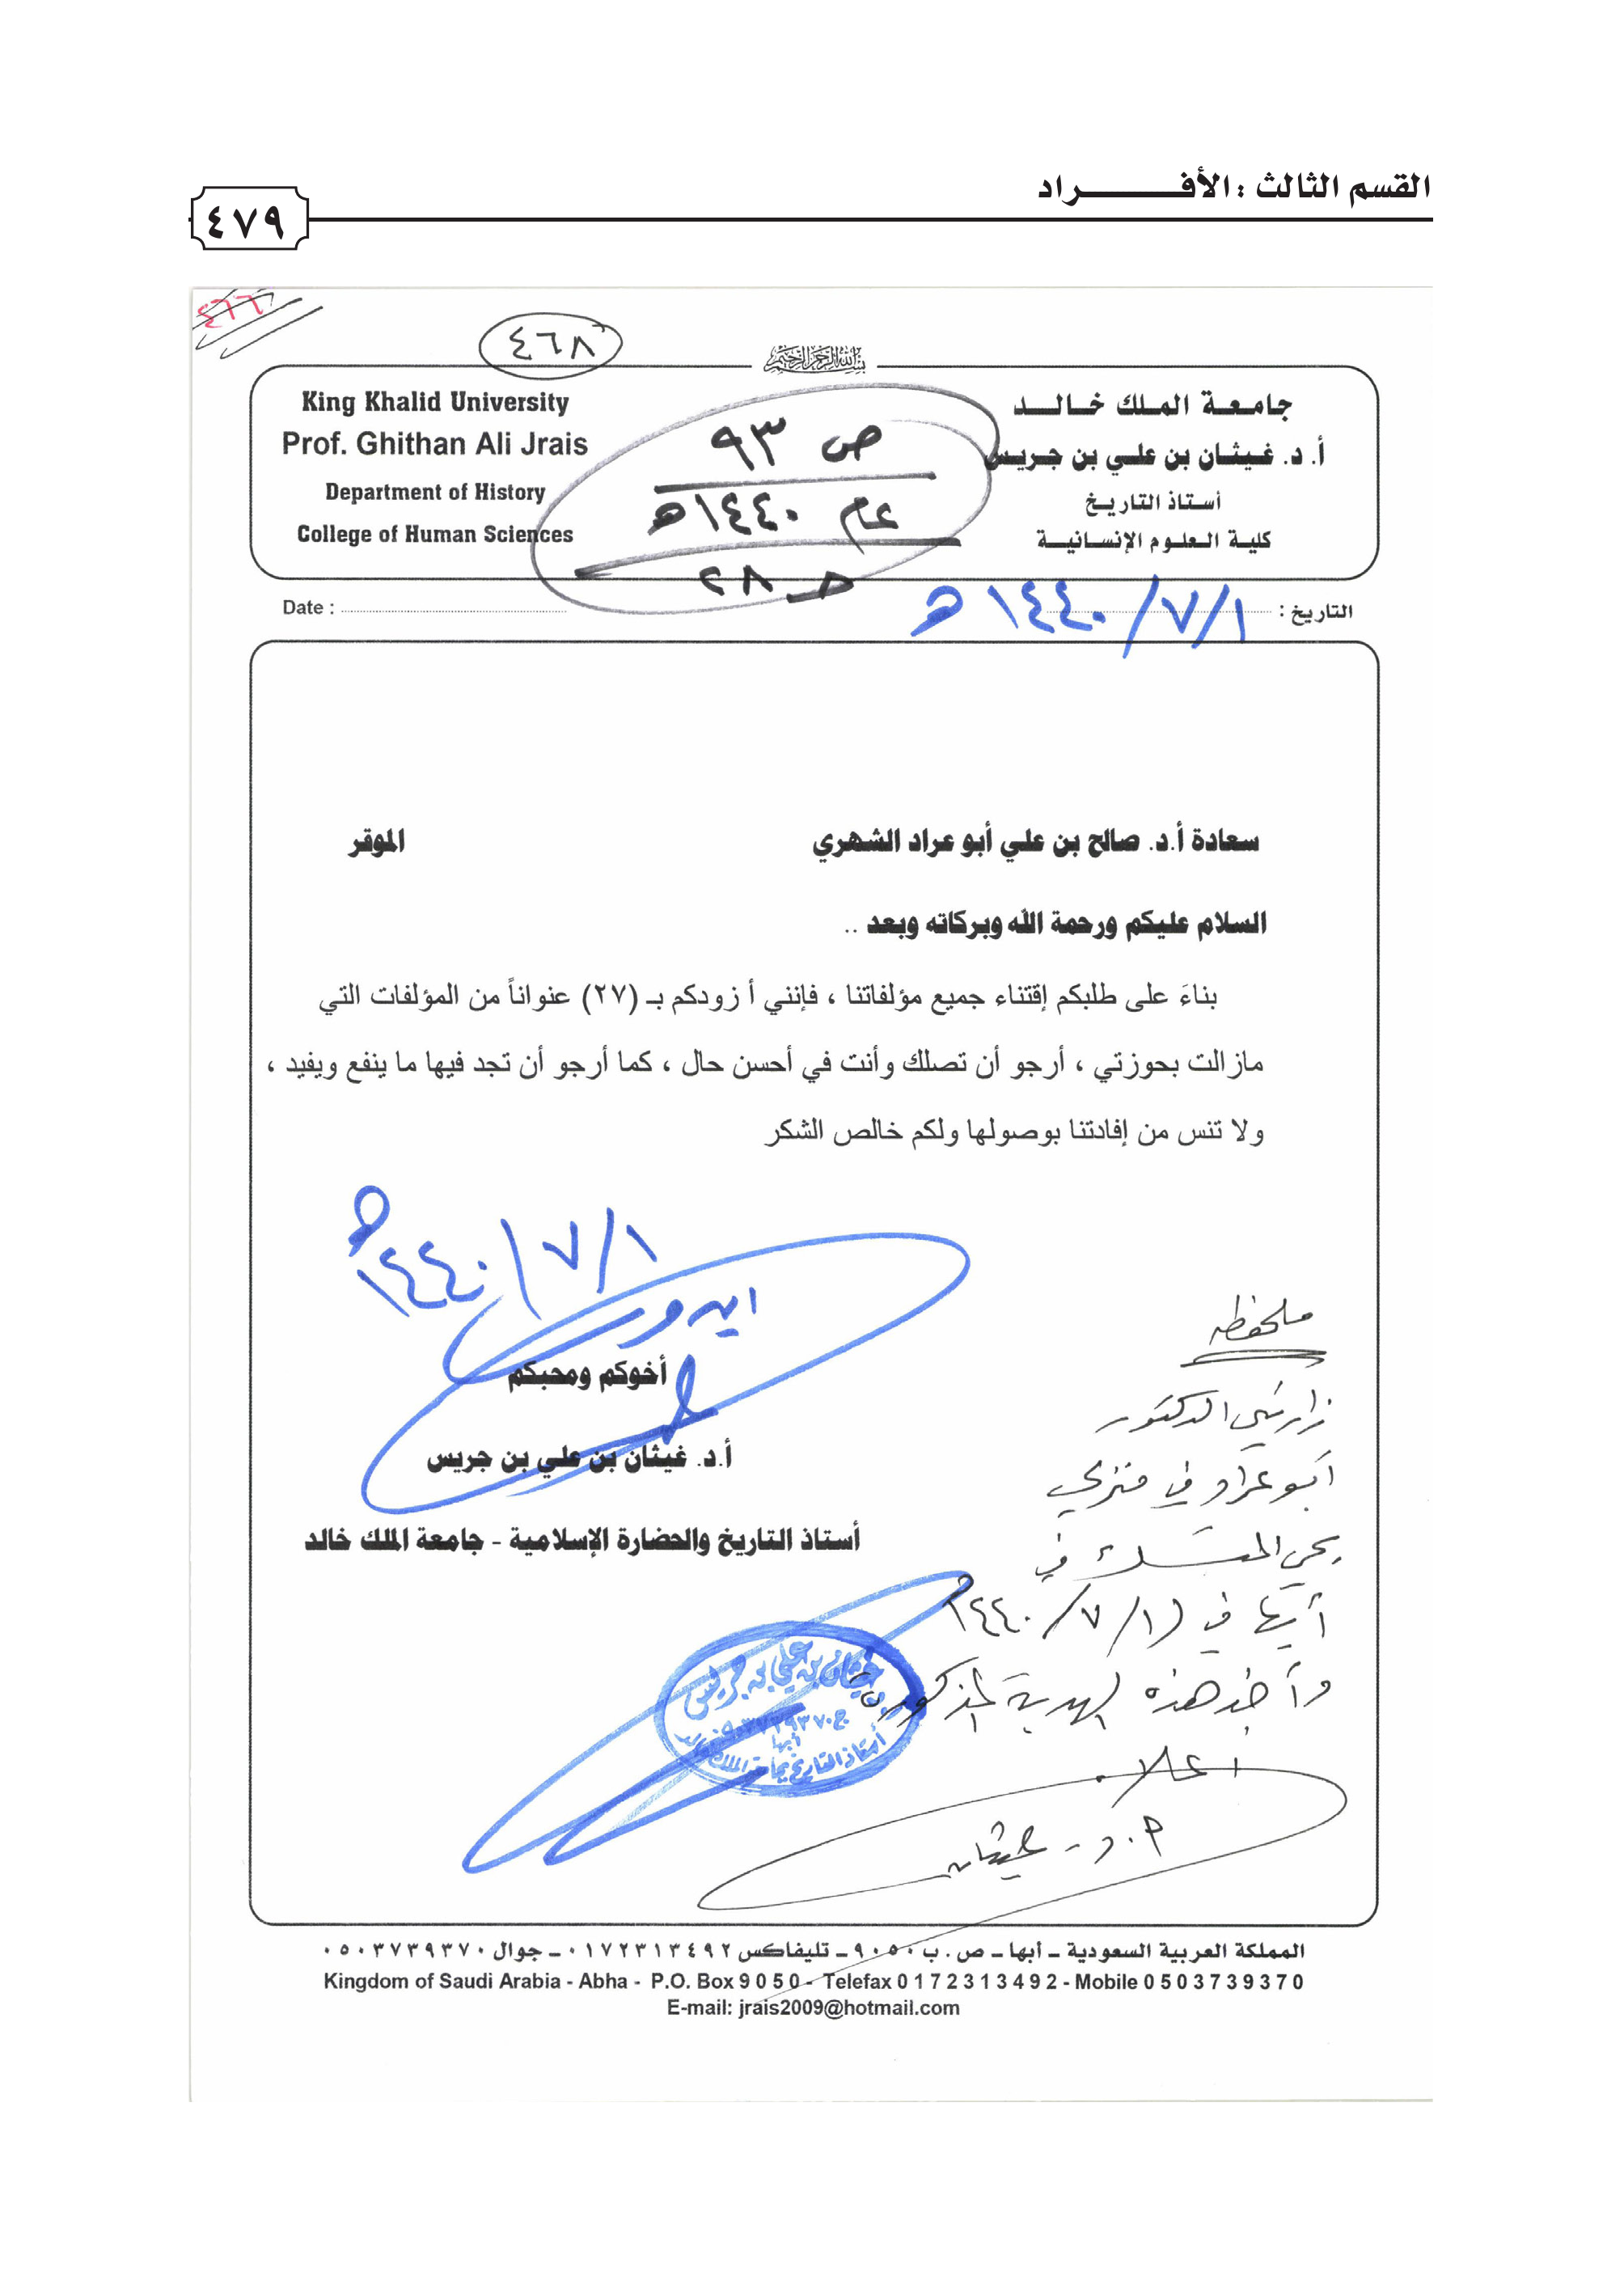 القسم الثالث : الأفـــــــــراد
٤٧٩
٤٦٦
٤٦٨
بسم الله الرحمن الرحيم
جامعة الملك خالد
أ. د. غيثان بن علي بن جريس
أستاذ التاريخ
كلية العلوم الإنسانية
King Khalid University
Prof. Ghithan Ali Jrais
Department of History
College of Human Sciences
ص ٩٣
عام ١٤٤٠هـ
حـ ٢٨
التاريخ : ١/٧/١٤٤٠هـ
Date :
سعادة أ.د. صالح بن علي أبو عراد الشهري الموقر
السلام عليكم ورحمة الله وبركاته وبعد ..
بناءَ على طلبكم إقتناء جميع مؤلفاتنا ، فإنني أ زودكم بـ (٢٧) عنواناً من المؤلفات التي
مازالت بحوزتي ، أرجو أن تصلك وأنت في أحسن حال ، كما أرجو أن تجد فيها ما ينفع ويفيد ،
ولا تنس من إفادتنا بوصولها ولكم خالص الشكر
١/٧/١٤٤٠هـ
أخوكم ومحبكم
أ.د. غيثان بن علي بن جريس
أستاذ التاريخ والحضارة الإسلامية - جامعة الملك خالد
ملحوظه
زارني الدكتور
أبو عراد في منزلي
بحي المنسك في
أبها في ١/٧/١٤٤٠هـ
وأخذ هذه الهدية المذكورة
أعلاه
أ.د- غيثان
غيثان بن علي بن جريس
أبها
أستاذ التاريخ بجامعة الملك خالد
المملكة العربية السعودية ـ أبها ـ ص . ب ٩٠٥٠ ـ تليفاكس ٠١٧٢٣١٣٤٩٢ ـ جوال ٠٥٠٣٧٣٩٣٧٠
Kingdom of Saudi Arabia - Abha - P.O. Box 9 0 5 0 - Telefax 0 1 7 2 3 1 3 4 9 2 - Mobile 0 5 0 3 7 3 9 3 7 0
E-mail: jrais2009@hotmail.com